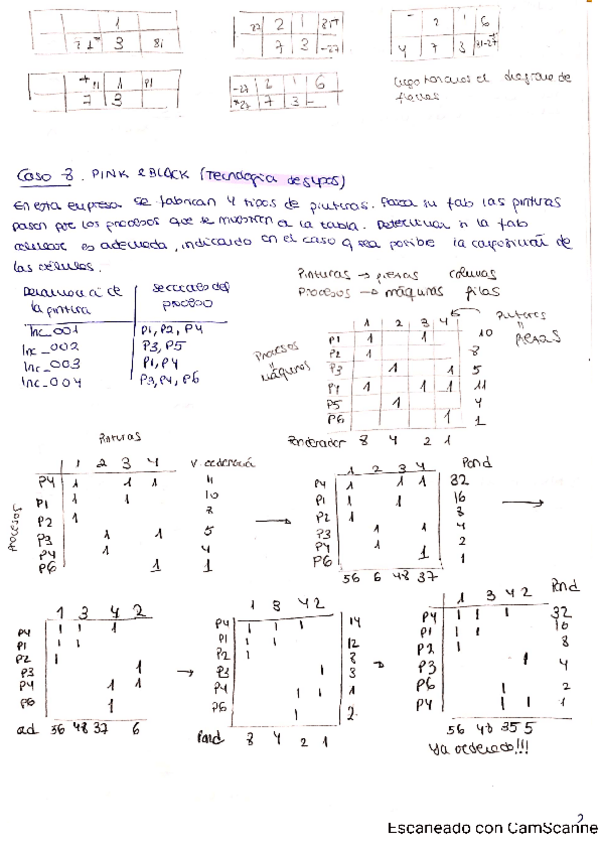 1
3 81
2 1
7 3 -27
2 1 6
4 7 3
1
7 3
-27 2 1 6
7 3 -
diagrama de
Caso 3. PINK & BLACK (Tecnología de grupos)
En esta empresa se fabrican 4 tipos de pinturas. Para su fab las pinturas
pasan por los procesos que se muestran en la tabla. Determinar si la fab
celular es adecuada, indicando en el caso q sea posible la composición de
las células.
Pinturas → piezas columnas
Procesos → máquinas filas
Denominación de la pintura
Secuencia del proceso
Inc_001 P1, P2, P4
Inc_002 P3, P5
Inc_003 P1, P4
Inc_004 P3, P4, P6
Pinturas = piezas
Procesos = máquinas
1 2 3 4
P1 1 1 10
P2 1 8
P3 1 1 5
P4 1 1 1 11
P5 1 4
P6 1 1
Ponderador 8 4 2 1
Pinturas
Procesos
1 2 3 4
P4 1 1 1 11
P1 1 1 10
P2 1 8
P3 1 1 5
P4 1 4
P6 1 1
Pond
1 2 3 4
P4 1 1 1 32
P1 1 1 16
P2 1 8
P3 1 1 4
P4 1 2
P6 1 1
56 6 48 37
→
1 3 4 2
P4 1 1 1
P1 1 1
P2 1
P3 1
P4 1 1
P6 1
56 48 37 6
→
1 3 4 2
P4 1 1 1 14
P1 1 1 12
P2 1 8
P3 1
P4 1 1
P6 1 2
Pond 8 4 2 1
→
Pond
1 3 4 2
P4 1 1 1 32
P1 1 1 16
P2 1 8
P3 1 4
P6 1 2
P4 1 1 1
56 48 35 5
Ya ordenado!!!
2
Escaneado con CamScanne